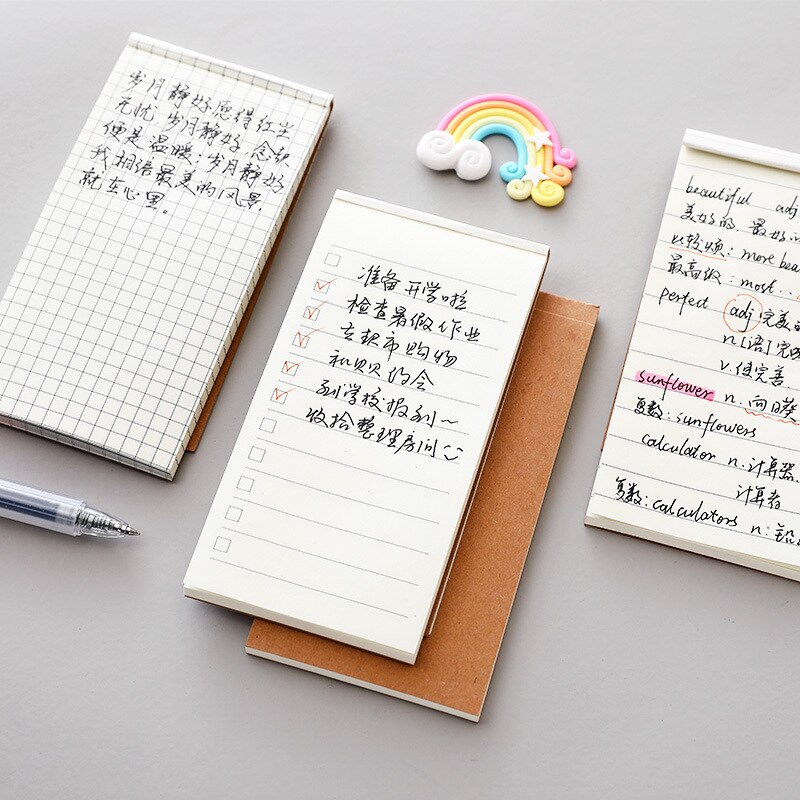 岁月静好愿得红尘
无忧,岁月静好,念起
便是温暖;岁月静好
我相信最美的风景,
就在心里。
准备开学啦
检查暑假作业
去超市购物
和贝贝约会
到学校报到～
收拾整理房间
beautiful adj
美好的.最好
比较级: more bea
最高级: most...
perfect adj 完美的
n.[语]完
v.使完善.
sunflower n.向日葵
复数: sunflowers
calculator n.计算器.
计算者
复数: calculators n: